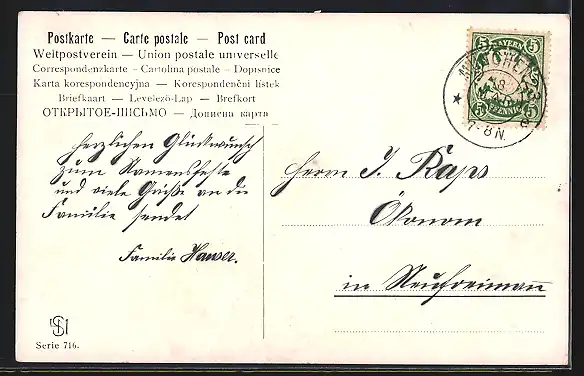 Postkarte — Carte postale — Post card
Weltpostverein — Union postale universelle
Correspondenzkarte — Cartolina postale — Dopisnice
Karta korespondencyjna — Korespondenční lístek
Briefkaart — Levelező-Lap — Brefkort
ОТКРЫТОЕ-ПИСЬМО — Дописна карта
5 BAYERN 5
5 PFENNIG 5
18 MAR
7-8 N
herzlichen Glückwunsch
zum Namensfeste
und viele Grüße an die
Familie sendet
Familie Hauser.
Herrn J. Raps
Ökonom
in Neufreimann
Serie 716.